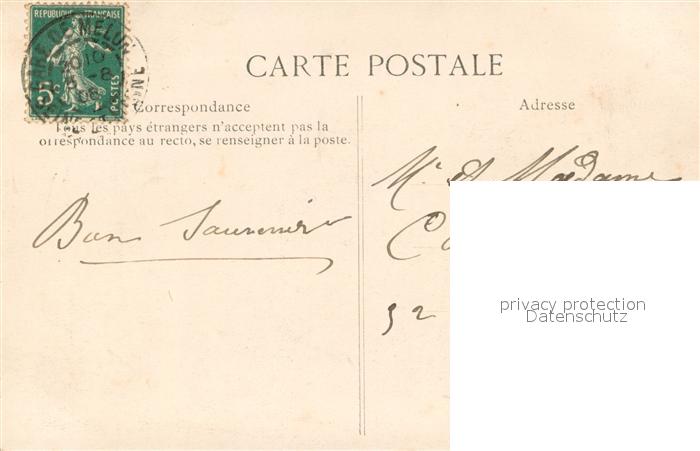 REPUBLIQUE FRANÇAISE
5c
POSTES
CARTE POSTALE
Correspondance
Tous les pays étrangers n'acceptent pas la
correspondance au recto, se renseigner à la poste.
Adresse
Mr et Madame
Bon Souvenir
52
privacy protection
Datenschutz